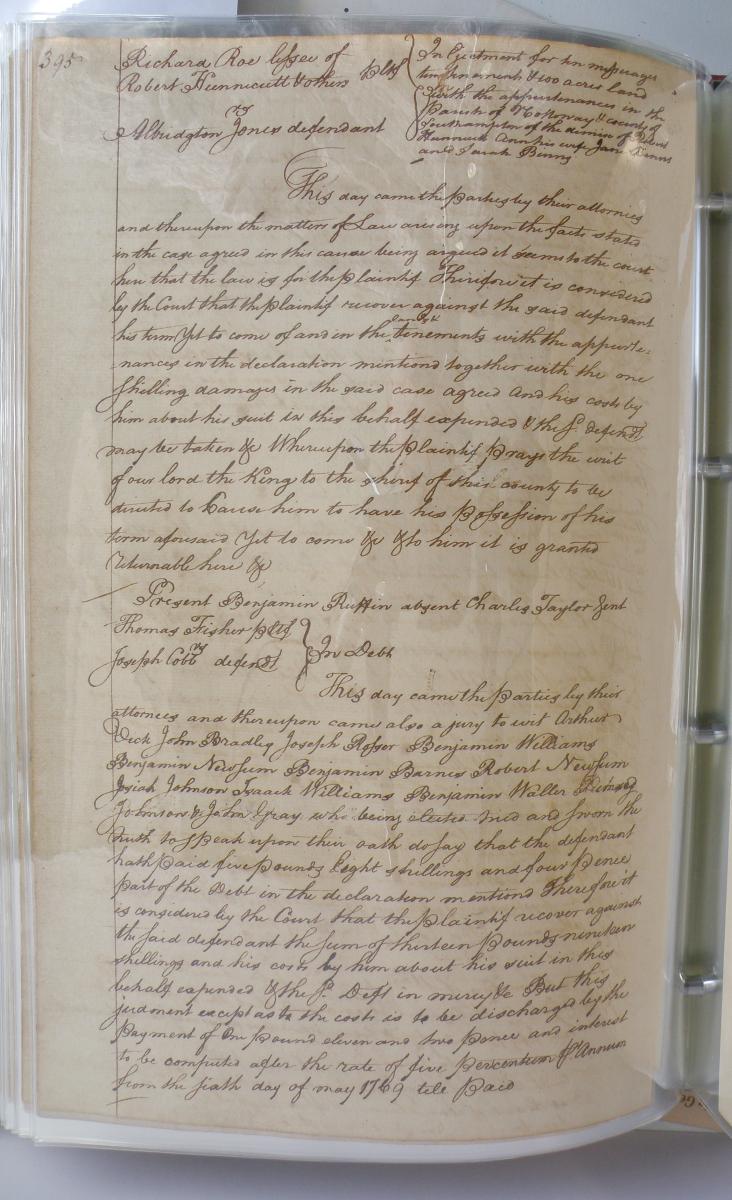 395
Richard Roe lessee of
Robert Hunnicutt & others pltf
vs
Albridgton Jones defendant
In Ejectment for ten messuages
ten tenements & 100 acres land
with the appurtenances in the
Parish of Nottoway & county of
Southampton of the demise of Robert
Hunnicutt Ann his wife Jane Binns
and Sarah Binns
This day came the parties by their attornies
and thereupon the matters of Law arising upon the facts stated
in the case agreed in this cause being argued it seems to the court
here that the law is for the plaintif Therefore it is considered
by the Court that the plaintif recover against the said defendant
his term yet to come of and in the land & tenements with the appurte-
nances in the declaration mentiond together with the one
Shilling damages in the said case agreed and his costs by
him about his suit in this behalf expended & the sd. defendt
may be taken &c Whereupon the plaintif prays the writ
of our lord the King to the shirif of this county to be
directed to Cause him to have his Possession of his
term aforesaid Yet to come &c & to him it is granted
returnable here &c
Present Benjamin Ruffin absent Charles Taylor Gent
Thomas Fisher pltf
vs
Joseph Cobb defendt
In Debt
This day came the parties by their
attornies and thereupon came also a jury to wit Arthur
Dick John Bradley Joseph Rosser Benjamin Williams
Benjamin Newsum Benjamin Barnes Robert Newsum
Josiah Johnson Isaack Williams Benjamin Waller
Johnson & John Gray who being elected tried and sworn the
truth to speak upon their oath do say that the defendant
hath paid five pounds Eight shillings and four pence
part of the Debt in the declaration mentiond Therefore it
is considered by the Court that the plaintif recover against
the said defendant the sum of thirteen pounds nineteen
shillings and his costs by him about his suit in this
behalf expended & the sd. Deft in mercy &c But this
judment except as to the costs is to be discharged by the
payment of One pound eleven and two pence and interest
to be computed after the rate of five Percentum Pr Annum
from the sixth day of may 1769 tele Paid